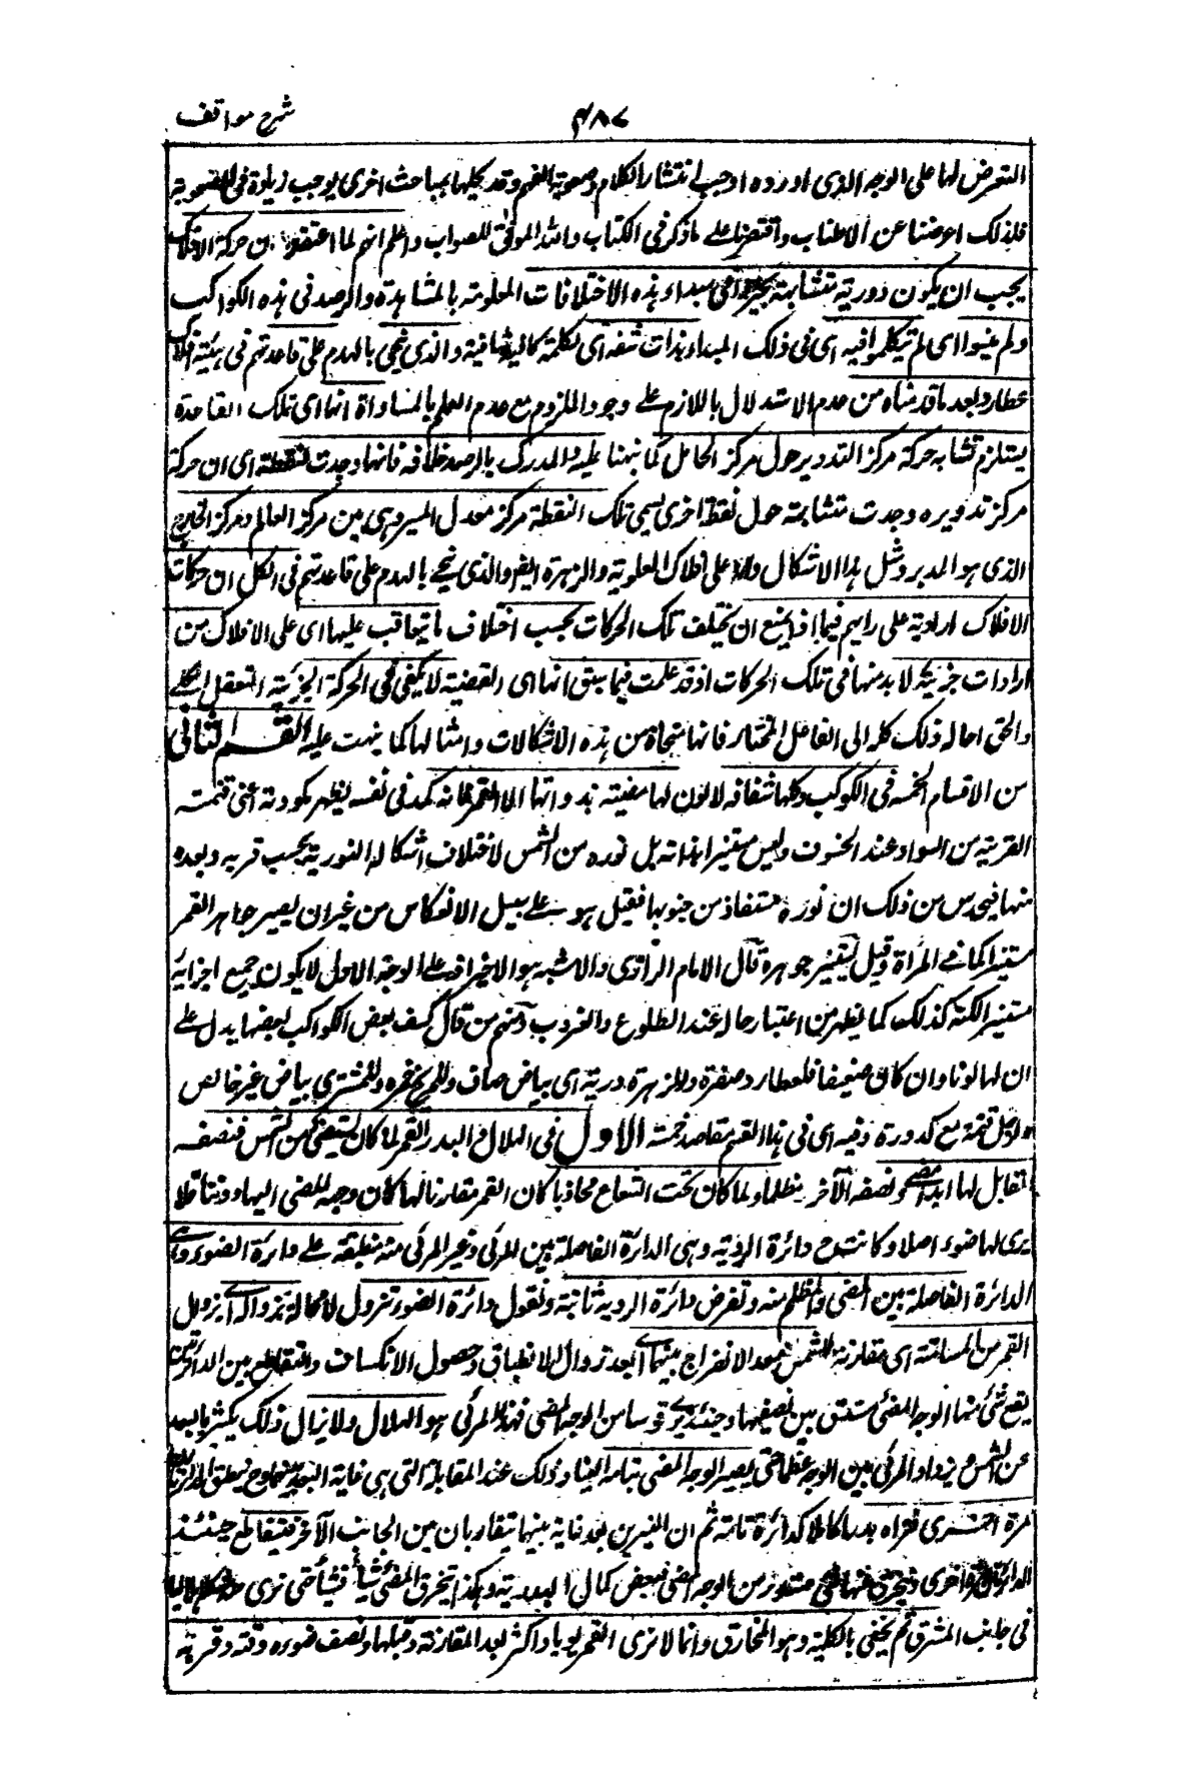 شرح مواقف
٤٨٧
التعرض لها على الوجه الذى اورده اوجب انتشار الكلام وصعوبة الفهم وقد تحليها بمباحث اخرى يوجب زيادة فى الصعوبة
فلذلك اعرضنا عن الاطناب واقتصرنا على ما ذكر فى الكتاب والله الموفق للصواب واعلم انهم لما اعتقدوا ان حركة الافلاك
يجب ان يكون دورية متشابهة تحيروا فى مبداء هذه الاختلافات المعلومة بالمشاهدة والرصد فى هذه الكواكب
ولم ينبسوا اى لم يتكلموا فيه اى فى ذلك المبداء ببنات شفه اى بكلمة شافية والذى نحى بالهدم على قاعدتهم فى هيئة افلاك
عطارد بعد ما قدمناه من عدم الاستدلال باللازم على وجود الملزوم مع عدم العلم بالمساواة انها اى تلك القاعدة
يستلزم تشابه حركة مركز التدوير حول مركز الحامل كما نبهنا عليه والمدرك بالرصد خلافه فانها وجدت لنقطة اى ان حركة
مركز تدويره وجدت متشابهة حول نقطة اخرى يسمى تلك النقطة مركز معدل المسير وهى بين مركز العالم ومركز الخارج
الذى هو المدير ومثل هذا الاشكال وارد على افلاك العلوية والزهرة ايضا والذى نحى بالهدم على قاعدتهم فى الكل ان حركات
الافلاك ارادية على رايهم فبما ذا يمنع ان يختلف تلك الحركات بحسب اختلاف ما يتعاقب عليها اى على الافلاك من
ارادات جزئية لا بد منها فى تلك الحركات اذ قد علمت فيما سبق انها اى القضية لا يكفى فى الحركة الجزئية التعقل الكلى
والحق احالة ذلك كله الى الفاعل المختار فانها منجاة من هذه الاشكالات وامثالها كما نبهت عليه القسم الثانى
من الاقسام الخمسة فى الكوكب وكلها شفافة لا لون لها مضيئة بذواتها الا القمر فانه كمد فى نفسه يظهر كمودته اعنى قتمته
القريبة من السواد عند الخسوف وليس مستنيرا بذاته بل نوره من الشمس لاختلاف اشكاله النورية بحسب قربه وبعده
منها فيحدس من ذلك ان نوره مستفاد من ضوئها فقيل هو على سبيل الانعكاس من غير ان يصير جوهر القمر
مستنيرا كما فى المرآة وقيل يستنير جوهره قال الامام الرازى والاشبه هو الاخير اذ على الوجه الاول لا يكون جميع اجزائه
مستنيرا لكنه كذلك كما يظهر من اعتبار حاله عند الطلوع والغروب ومنهم من قال كسف بعض الكواكب لبعضها يدل على
ان لها لونا وان كان ضعيفا فلعطارد صفرة وللزهرة درية اى بياض صاف وللمريخ حمرة وللمشترى بياض غير خالص
ولزحل قتمة مع كدورة وفيه اى فى هذا القسم مقاصد خمسة الاول فى الهلال والبدر القمر لما كان يستضىء من الشمس فنصفه
المقابل لها ابدا مضىء ونصفه الآخر مظلم ولما كان تحت الشعاع محاذيا كان القمر مقارنا لها كان وجهه المضى اليها دوننا فلا
يرى لها ضوء اصلا وكانت دائرة الرؤية وهى الدائرة الفاصلة بين المرئى وغير المرئى منه منطبقة على دائرة الضوء وهى
الدائرة الفاصلة بين المضى والمظلم منه وتفرض دائرة الروية ثابتة ونقول دائرة الضوء تزول لا محالة بزواله اى بزوال
القمر من المسامتة اى مقارنة الشمس فبعد الانفراج بينهما اى بعد زوال الانطباق وحصول الانكساف والتقاطع بين الدائرتين
يقع شئ منها الوجه المضئ مستدق بين نصفيهما وحينئذ يرى قوسا من الوجه المضى فهذا المرئى هو الهلال ولا يزال ذلك يكثر بالبعد
عن الشمس ويزداد المرئى من الوجه عظما حتى يصير الوجه المضى بتمامه الينا وذلك عند المقابلة التى هى غاية البعد بينهما وح ينطبق الدائرتان
مرة اخرى فنراه بدرا كاملا كدائرة تامة ثم ان النيرين بعد غاية بينهما يتقاربان من الجانب الآخر فيتقاطع حينئذ
الدائرتان مرة اخرى وينحرف منها شئ مستدق من الوجه المضى فينقص كمال البدرية وهكذا ينحرف المضئ شيأ فشيأ حتى نرى هلاليا
فى جانب المشرق ثم يخفى بالكلية وهو المحاق وانما لا نرى القمر يوما او اكثر بعد المقارنة وقبلها ولضعف ضوءه ودقته وقربه